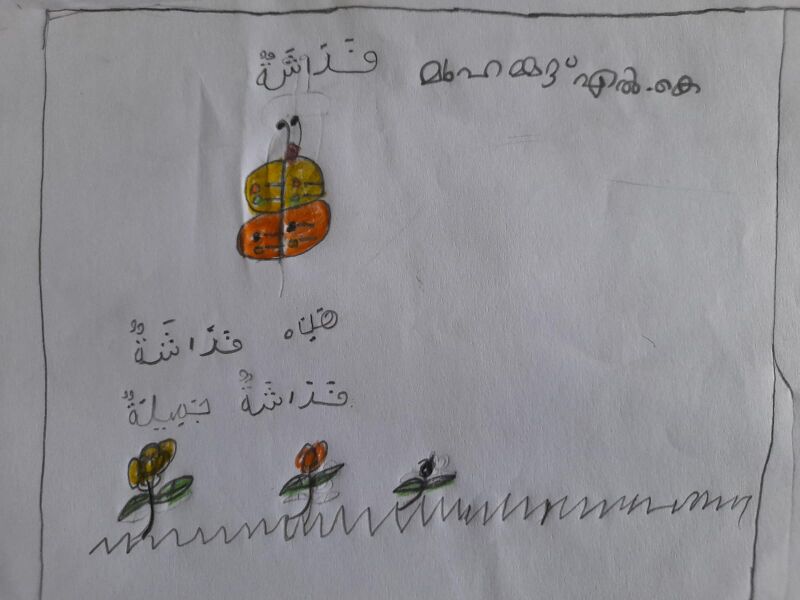 فَرَاشَةٌ
മുഹമ്മദ് എൽ.കെ
هَذِهِ فَرَاشَةٌ
فَرَاشَةٌ جَمِيلَةٌ